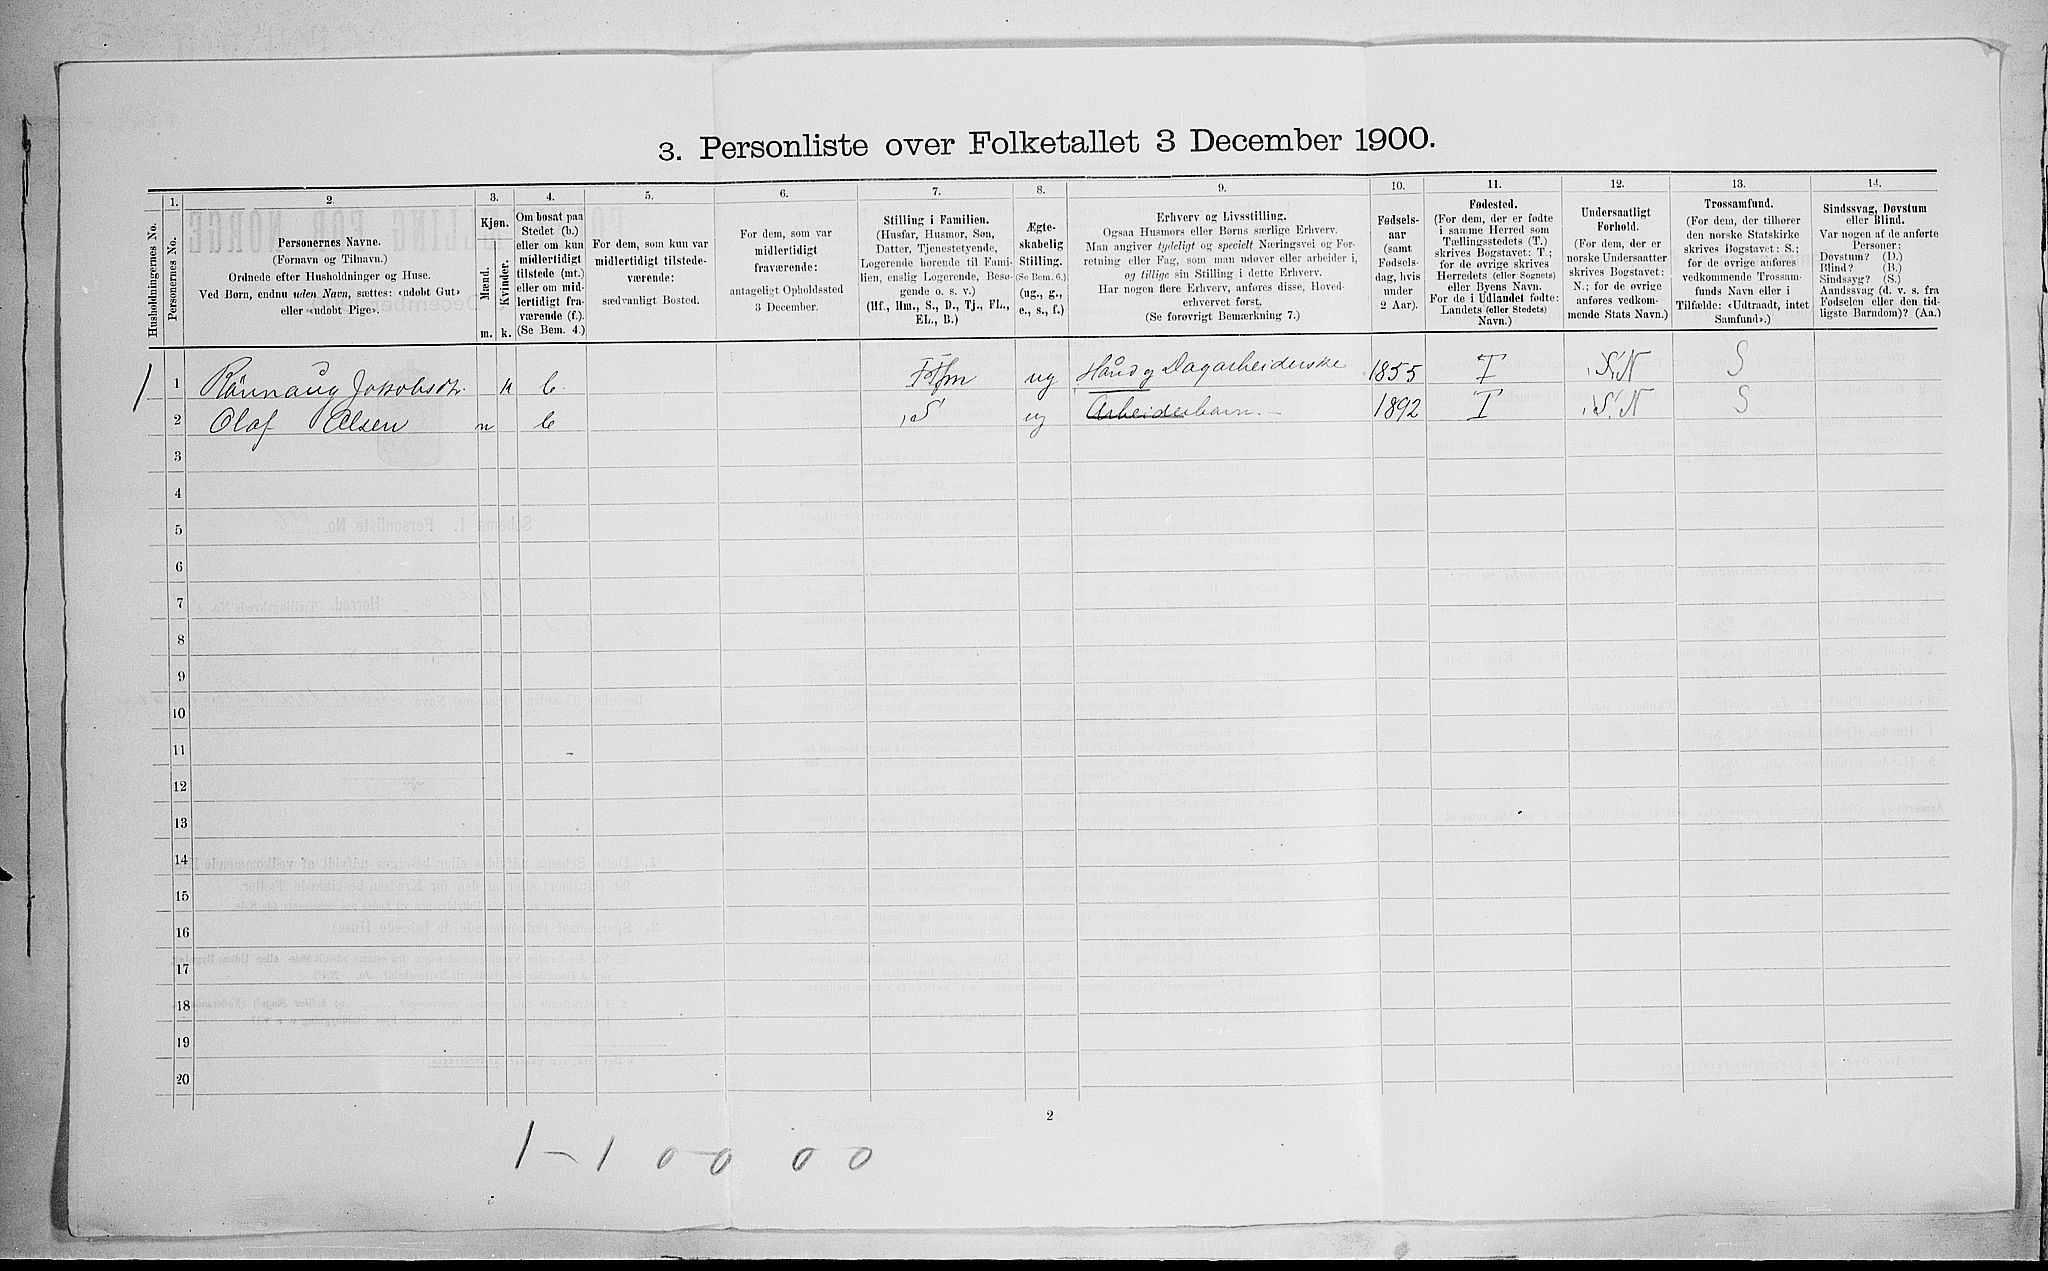 3. Personliste over Folketallet 3 December 1900.
1. 2. 3. 4. 5. 6. 7. 8. 9. 10. 11. 12. 13. 14.
Husholdningernes No.
Personernes No.
Personernes Navne.
(Fornavn og Tilnavn.)
Ordnede efter Husholdninger og Huse.
Ved Børn, endnu uden Navn, sættes: «udøbt Gut»
eller «udøbt Pige».
Kjøn.
Mænd.
Kvinder.
m. k.
Om bosat paa
Stedet (b.)
eller om kun
midlertidigt
tilstede (mt.)
eller om mid-
lertidigt fra-
værende (f.).
(Se Bem. 4.)
For dem, som kun var
midlertidigt tilstede-
værende:
sædvanligt Bosted.
For dem, som var
midlertidigt
fraværende:
antageligt Opholdssted
3 December.
Stilling i Familien.
(Husfar, Husmor, Søn,
Datter, Tjenestetyende,
Logerende hørende til Fami-
lien, enslig Logerende, Besø-
gende o. s. v.)
(Hf., Hm., S., D., Tj., FL.,
EL., B.)
Ægte-
skabelig
Stilling.
(Se Bem. 6.)
(ug., g.,
e., s., f.)
Erhverv og Livsstilling.
Ogsaa Husmors eller Børns særlige Erhverv.
Man angiver tydeligt og specielt Næringsvei og For-
retning eller Fag, som man udøver eller arbeider i,
og tillige sin Stilling i dette Erhverv.
Har nogen flere Erhverv, anføres disse, Hoved-
erhvervet først.
(Se forøvrigt Bemærkning 7.)
Fødsels-
aar
(samt
Fødsels-
dag, hvis
under
2 Aar).
Fødested.
(For dem, der er fødte
i samme Herred som
Tællingsstedets (T.)
skrives Bogstavet: T;
for de øvrige skrives
Herredets (eller Sognets)
eller Byens Navn.
For de i Udlandet fødte:
Landets (eller Stedets)
Navn.)
Undersaatligt
Forhold.
(For dem, der er
norske Undersaatter
skrives Bogstavet:
N.; for de øvrige
anføres vedkom-
mende Stats Navn.)
Trossamfund.
(For dem, der tilhører
den norske Statskirke
skrives Bogstavet: S.;
for de øvrige anføres
vedkommende Trossam-
funds Navn eller i
Tilfælde: «Udtraadt, intet
Samfund».)
Sindssvag, Døvstum
eller Blind.
Var nogen af de anførte
Personer:
Døvstum? (D.)
Blind? (B.)
Sindssyg? (S.)
Aandssvag (d. v. s. fra
Fødselen eller den tid-
ligste Barndom)? (Aa.)
1 1 Rönnaug Jakobsdtr. k b. Hm ug Haand og Dagarbeiderske 1855 T N S
2 Olaf Olsen m b S ug Arbeiderbarn 1892 T N S
3
4
5
6
7
8
9
10
11
12
13
14
15
16
17
18
19
20
2
1 - 1 0 - 0 0 0